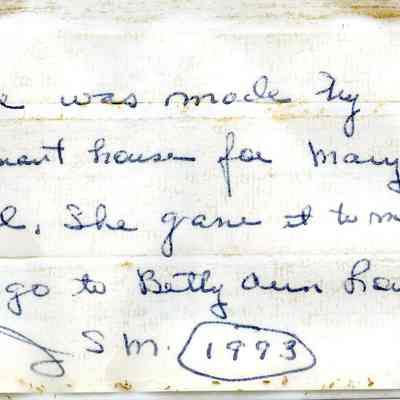 e was made by
mant house for Mary
l. She gave it to m
go to Betty Ann Ha
S M. 1993